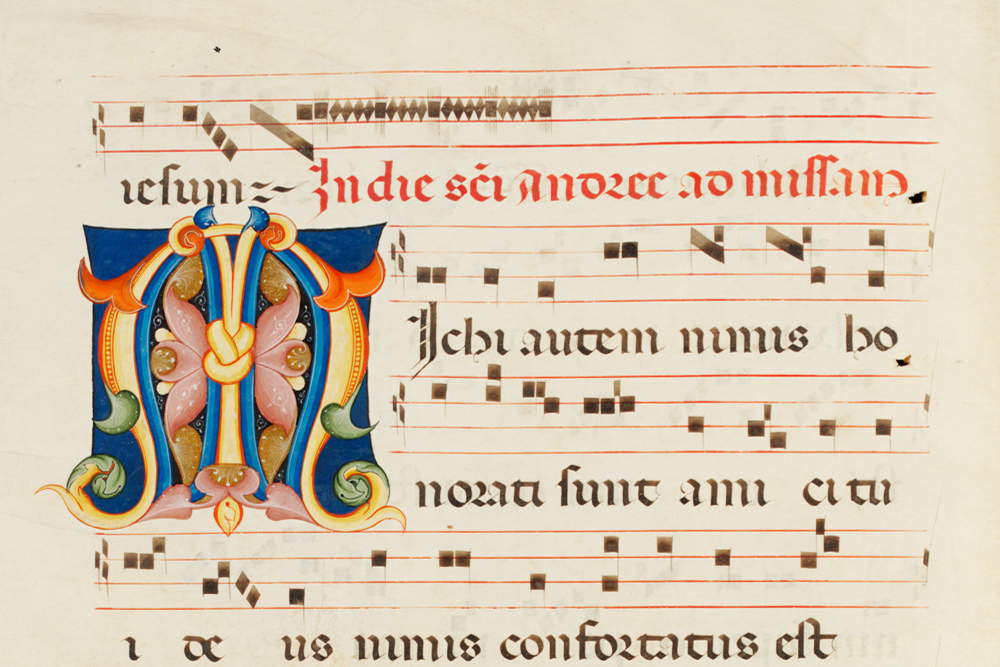 iesum In die sc̄i Andree ad missam
MIchi autem nimis ho
norati sunt ami ci tu
i de us nimis confortatus est